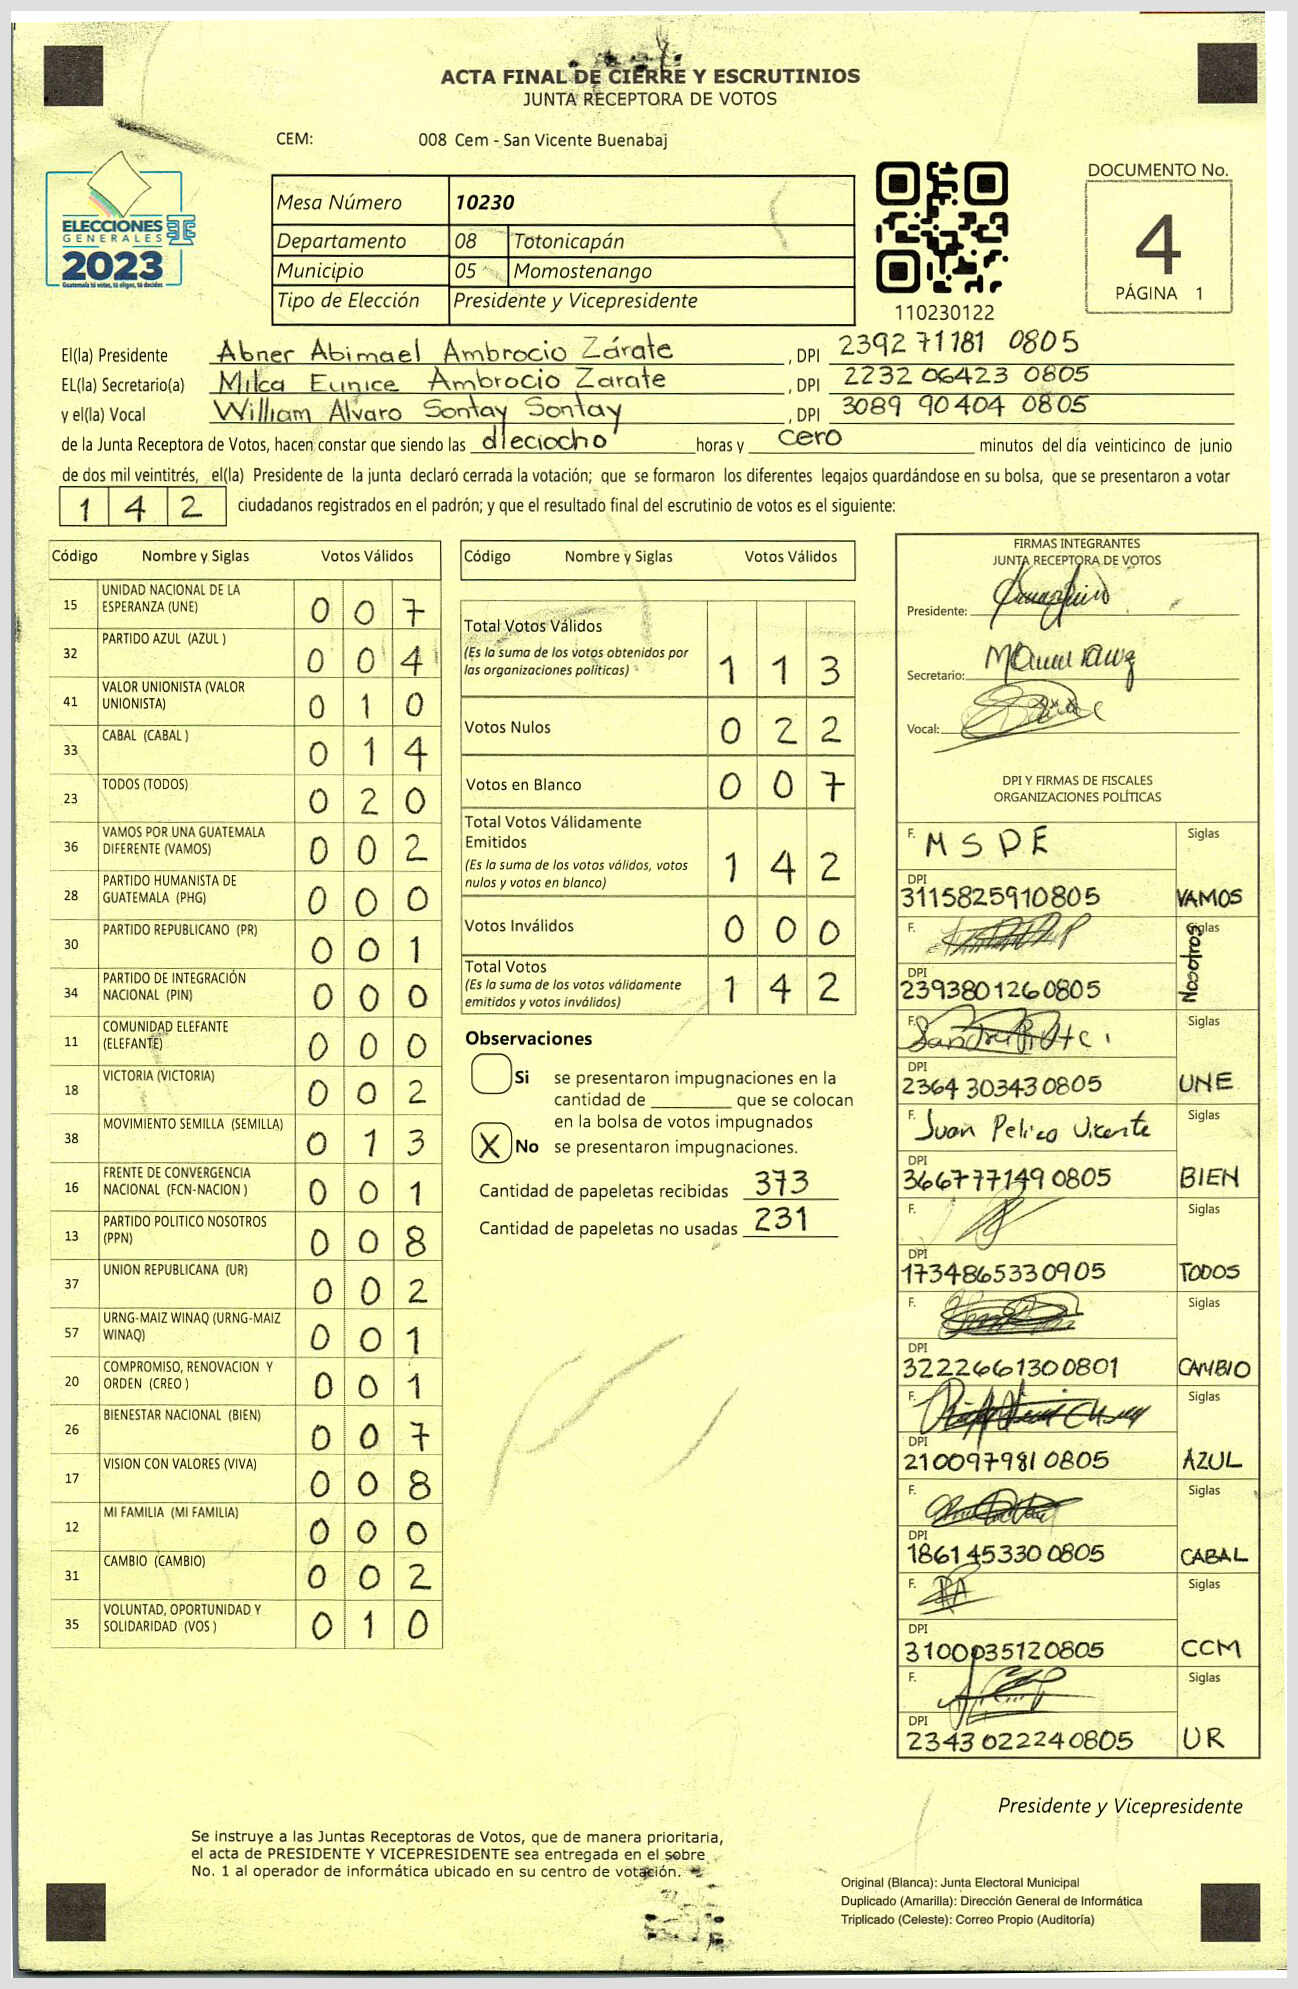 ACTA FINAL DE CIERRE Y ESCRUTINIOS
JUNTA RECEPTORA DE VOTOS
CEM: 008 Cem - San Vicente Buenabaj
ELECCIONES
GENERALES
2023
Guatemala tú votas, tú eliges, tú decides
Mesa Número 10230
Departamento 08 Totonicapán
Municipio 05 Momostenango
Tipo de Elección Presidente y Vicepresidente
110230122
DOCUMENTO No.
4
PÁGINA 1
El(la) Presidente Abner Abimael Ambrocio Zárate , DPI 2392 71181 0805
EL(la) Secretario(a) Milca Eunice Ambrocio Zarate , DPI 2232 06423 0805
y el(la) Vocal William Alvaro Sontay Sontay , DPI 3089 90404 0805
de la Junta Receptora de Votos, hacen constar que siendo las dieciocho horas y cero minutos del día veinticinco de junio
de dos mil veintitrés, el(la) Presidente de la junta declaró cerrada la votación; que se formaron los diferentes legajos guardándose en su bolsa, que se presentaron a votar
1 4 2 ciudadanos registrados en el padrón; y que el resultado final del escrutinio de votos es el siguiente:
Código Nombre y Siglas Votos Válidos
15 UNIDAD NACIONAL DE LA ESPERANZA (UNE) 0 0 7
32 PARTIDO AZUL (AZUL ) 0 0 4
41 VALOR UNIONISTA (VALOR UNIONISTA) 0 1 0
33 CABAL (CABAL ) 0 1 4
23 TODOS (TODOS) 0 2 0
36 VAMOS POR UNA GUATEMALA DIFERENTE (VAMOS) 0 0 2
28 PARTIDO HUMANISTA DE GUATEMALA (PHG) 0 0 0
30 PARTIDO REPUBLICANO (PR) 0 0 1
34 PARTIDO DE INTEGRACIÓN NACIONAL (PIN) 0 0 0
11 COMUNIDAD ELEFANTE (ELEFANTE) 0 0 0
18 VICTORIA (VICTORIA) 0 0 2
38 MOVIMIENTO SEMILLA (SEMILLA) 0 1 3
16 FRENTE DE CONVERGENCIA NACIONAL (FCN-NACION ) 0 0 1
13 PARTIDO POLITICO NOSOTROS (PPN) 0 0 8
37 UNION REPUBLICANA (UR) 0 0 2
57 URNG-MAIZ WINAQ (URNG-MAIZ WINAQ) 0 0 1
20 COMPROMISO, RENOVACION Y ORDEN (CREO ) 0 0 1
26 BIENESTAR NACIONAL (BIEN) 0 0 7
17 VISION CON VALORES (VIVA) 0 0 8
12 MI FAMILIA (MI FAMILIA) 0 0 0
31 CAMBIO (CAMBIO) 0 0 2
35 VOLUNTAD, OPORTUNIDAD Y SOLIDARIDAD (VOS ) 0 1 0
Código Nombre y Siglas Votos Válidos
Total Votos Válidos
(Es la suma de los votos obtenidos por las organizaciones políticas) 1 1 3
Votos Nulos 0 2 2
Votos en Blanco 0 0 7
Total Votos Válidamente Emitidos
(Es la suma de los votos válidos, votos nulos y votos en blanco) 1 4 2
Votos Inválidos 0 0 0
Total Votos
(Es la suma de los votos válidamente emitidos y votos inválidos) 1 4 2
Observaciones
Si se presentaron impugnaciones en la
cantidad de ________ que se colocan
en la bolsa de votos impugnados
X No se presentaron impugnaciones.
Cantidad de papeletas recibidas 373
Cantidad de papeletas no usadas 231
FIRMAS INTEGRANTES
JUNTA RECEPTORA DE VOTOS
Presidente:
Secretario:
Vocal:
DPI Y FIRMAS DE FISCALES
ORGANIZACIONES POLÍTICAS
F. M S P E Siglas
DPI 3115825910805 VAMOS
F. Siglas
DPI 2393801260805 Nosotros
F. Siglas
DPI 2364 303430805 UNE
F. Juan Pelico Vicente Siglas
DPI 3667771490805 BIEN
F. Siglas
DPI 1734865330905 TODOS
F. Siglas
DPI 3222661300801 CAMBIO
F. Siglas
DPI 2100979810805 AZUL
F. Siglas
DPI 1861453300805 CABAL
F. Siglas
DPI 3100035120805 CCM
F. Siglas
DPI 2343022240805 UR
Presidente y Vicepresidente
Se instruye a las Juntas Receptoras de Votos, que de manera prioritaria,
el acta de PRESIDENTE Y VICEPRESIDENTE sea entregada en el sobre
No. 1 al operador de informática ubicado en su centro de votación.
Original (Blanca): Junta Electoral Municipal
Duplicado (Amarilla): Dirección General de Informática
Triplicado (Celeste): Correo Propio (Auditoría)